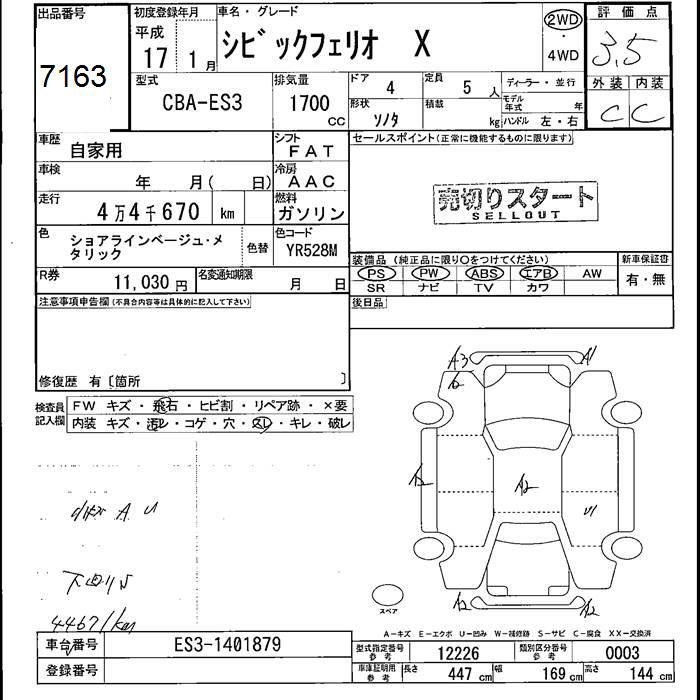 出品番号
7163
初度登録年月
平成
17 1月
車名・グレード
シビックフェリオ X
2WD
・
4WD
評価点
3.5
外装 内装
C C
型式
CBA-ES3
排気量
1700
cc
ドア 4
定員 5人
形状 ソノタ
積載 kg
ディーラー・並行
モデル年式 年
ハンドル 左・右
車歴 自家用
シフト FAT
車検 年 月( 日)
冷房 AAC
走行 4万4千670 km
燃料 ガソリン
色 ショアラインベージュ・メタリック
色替
色コード YR528M
R券 11,030円
名変通知期限 月 日
セールスポイント(正常に機能するものに限ります)
売切りスタート
SELLOUT
装備品 (純正品に限り○をつけてください)
新車保証書
PS PW ABS エアB AW
SR ナビ TV カワ
有・無
後日品
注意事項申告欄(不具合内容等は具体的に記入して下さい)
修復歴 有〔箇所 〕
検査員記入欄
FW キズ・飛石・ヒビ割・リペア跡・×要
内装 キズ・汚レ・コゲ・穴・スレ・キレ・破レ
A3 A1
A2
A2
U1
A2 A2
A U
下回りS
44671km
スペア
A-キズ E-エクボ U-凹み W-補修跡 S-サビ C-腐食 XX-交換済
車台番号 ES3-1401879
登録番号
型式指定番号 参考 12226
類別区分番号 参考 0003
車庫証明用 参考
長さ 447cm
幅 169cm
高さ 144cm